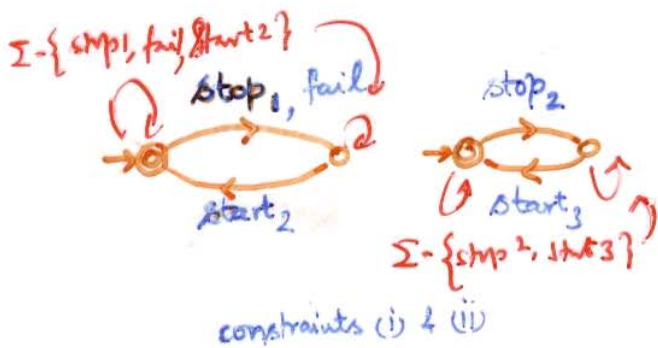 Σ-{stop1, fail, start2}
stop₁, fail
stop₂
start₂
start₃
Σ-{stop2, start3}
constraints (i) & (ii)